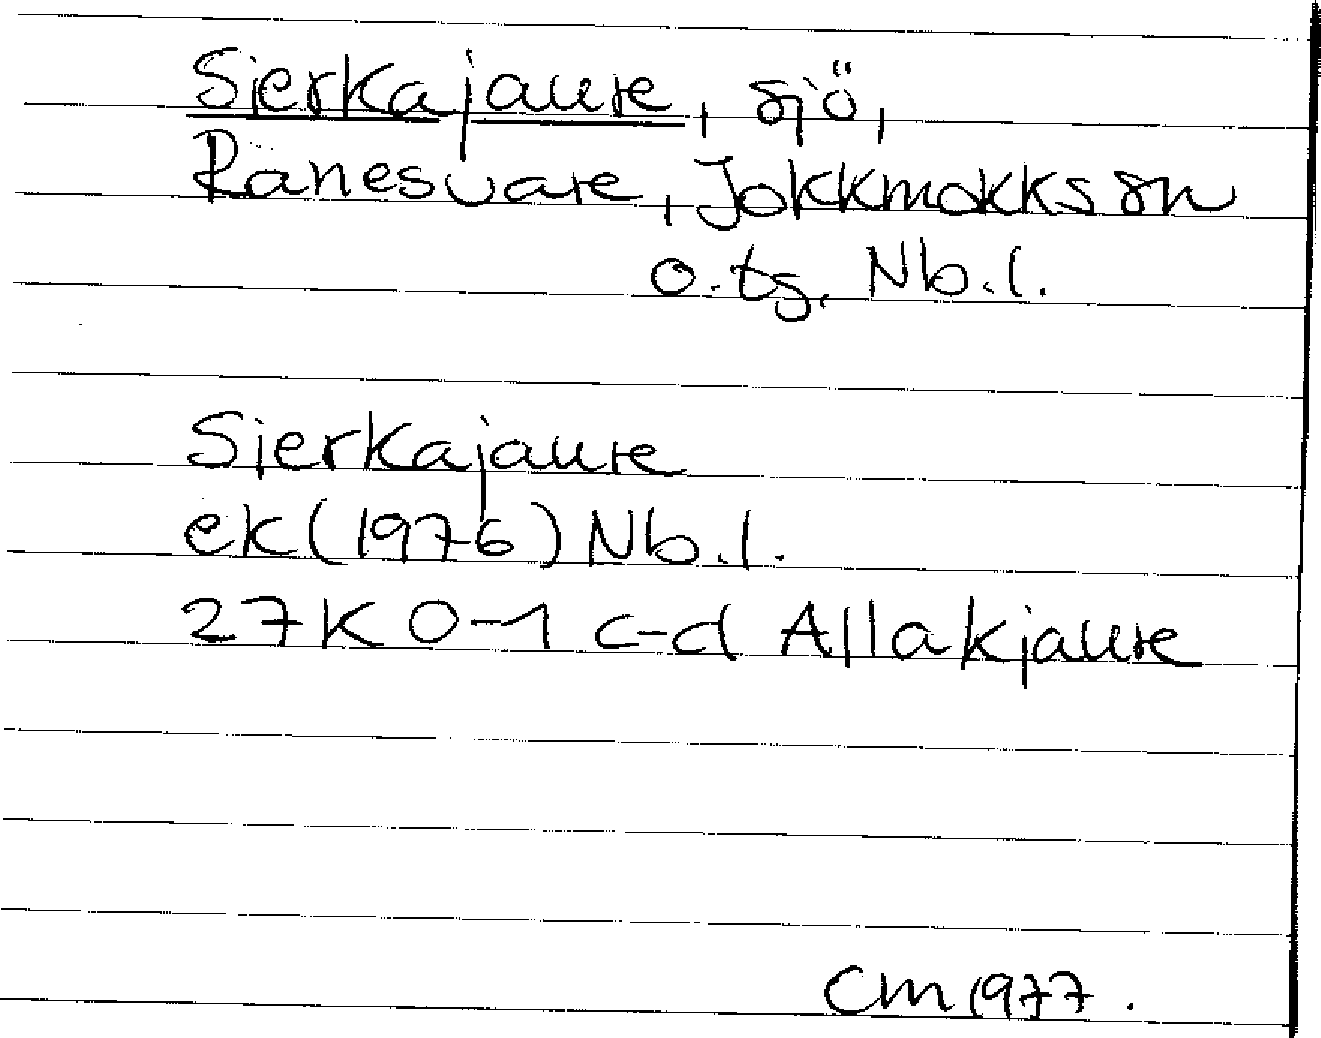 Sierkajaure, sjö,
Ranesvare, Jokkmokks sn
o. tg. Nb.l.
Sierkajaure
ek (1976) Nb.l.
27K 0-1 c-d Allakjaure
Cm 1977.